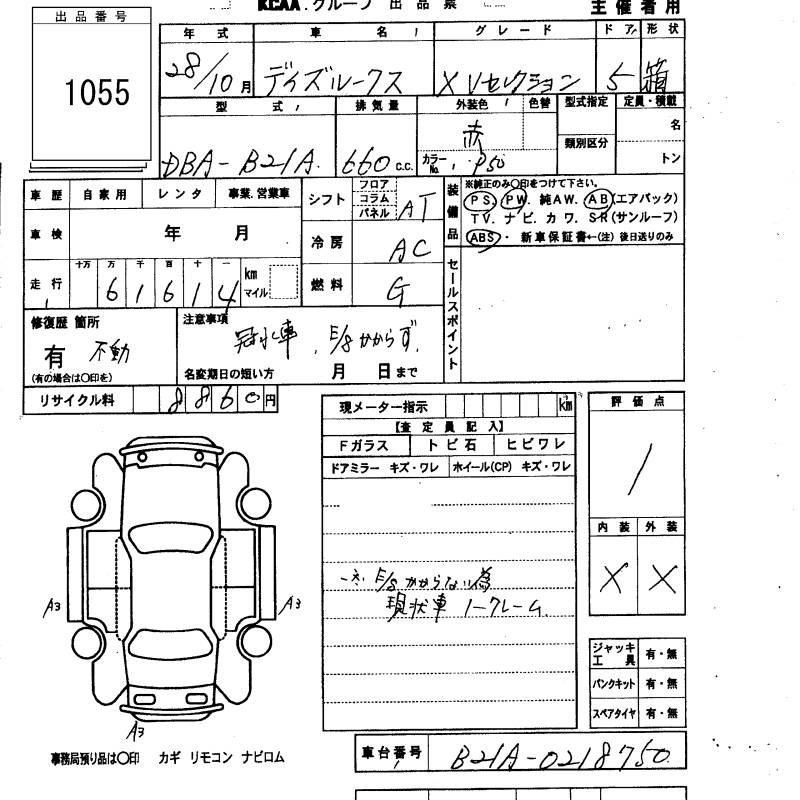 KCAA.グループ 出品票
主催者用
出品番号
1055
年式 車名 グレード ドア 形状
28/10月 デイズルークス X Vセレクション 5 箱
型式 排気量 外装色 色替 型式指定 定員・積載
DBA-B21A 660c.c. 赤 カラーNo. P50 類別区分 名
トン
車歴 自家用 レンタ 事業.営業車
シフト フロア コラム パネル AT
装備品
※純正のみ〇印をつけて下さい。
PS. PW. 純AW. AB(エアバック)
TV. ナビ. カワ. S-R(サンルーフ)
ABS・ 新車保証書←(注) 後日送りのみ
車検 年 月
冷房 AC
走行 十万 万 千 百 十 一
6 1 6 1 4 km マイル
燃料 G
セールスポイント
修復歴 箇所
有 不動
(有の場合は〇印を)
注意事項
冠水車. E/gかからず.
名変期日の短い方 月 日まで
リサイクル料 8860円
現メーター指示 km
【査定員記入】
Fガラス トビ石 ヒビワレ
ドアミラー キズ・ワレ ホイール(CP) キズ・ワレ
E/gかからない為
現状車 ノークレーム.
評価点
/
内装 外装
X X
A3
A3
A3
ジャッキ工具 有・無
パンクキット 有・無
スペアタイヤ 有・無
事務局預り品は〇印 カギ リモコン ナビロム
車台番号 B21A-0218750